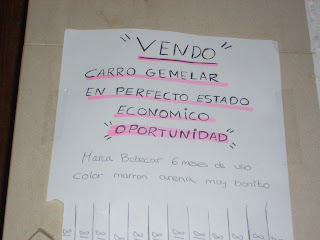 "VENDO"
CARRO GEMELAR
EN PERFECTO ESTADO
ECONOMICO
"OPORTUNIDAD"
Marca Bebecar 6 meses de uso
color marron arena muy bonito